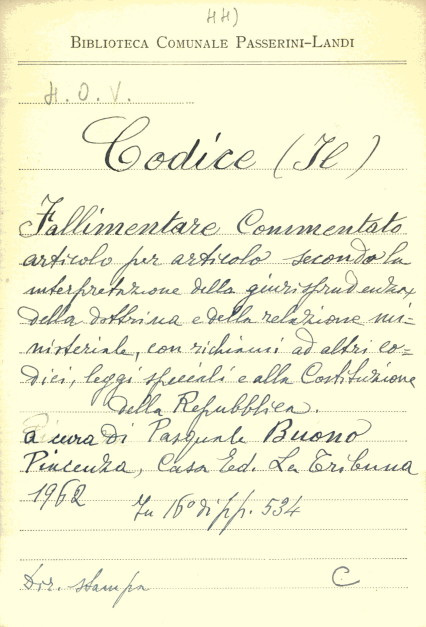 44)
BIBLIOTECA COMUNALE PASSERINI-LANDI
H. O. V.
Codice (Il)
Fallimentare Commentato
articolo per articolo secondo la
interpretazione della giurisprudenza,
della dottrina e della relazione mi=
nisteriale, con richiami ad altri co=
dici, leggi speciali e alla Costituzione
della Repubblica.
a cura di Pasquale Buono
Piacenza, Casa Ed. La Tribuna
1962 In 16° di pp. 534
Dir. stampa C